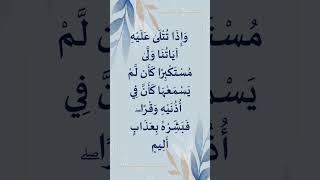 وَإِذَا تُتْلَىٰ عَلَيْهِ
آيَاتُنَا وَلَّىٰ
مُسْتَكْبِرًا كَأَن لَّمْ
يَسْمَعْهَا كَأَنَّ فِي
أُذُنَيْهِ وَقْرًا ۖ
فَبَشِّرْهُ بِعَذَابٍ
أَلِيمٍ